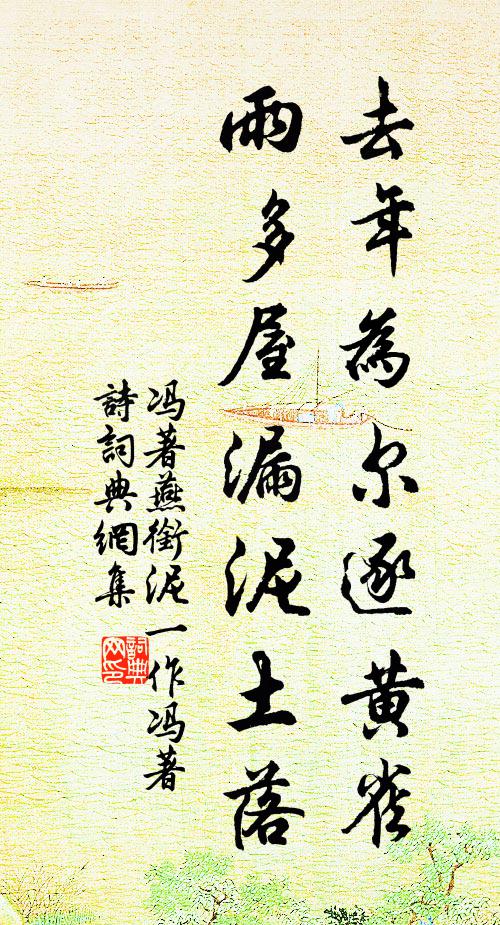 去年為尔逐黄雀
雨多屋漏泥土落
冯著燕銜泥一作冯著
詩詞典網集
詞典網印